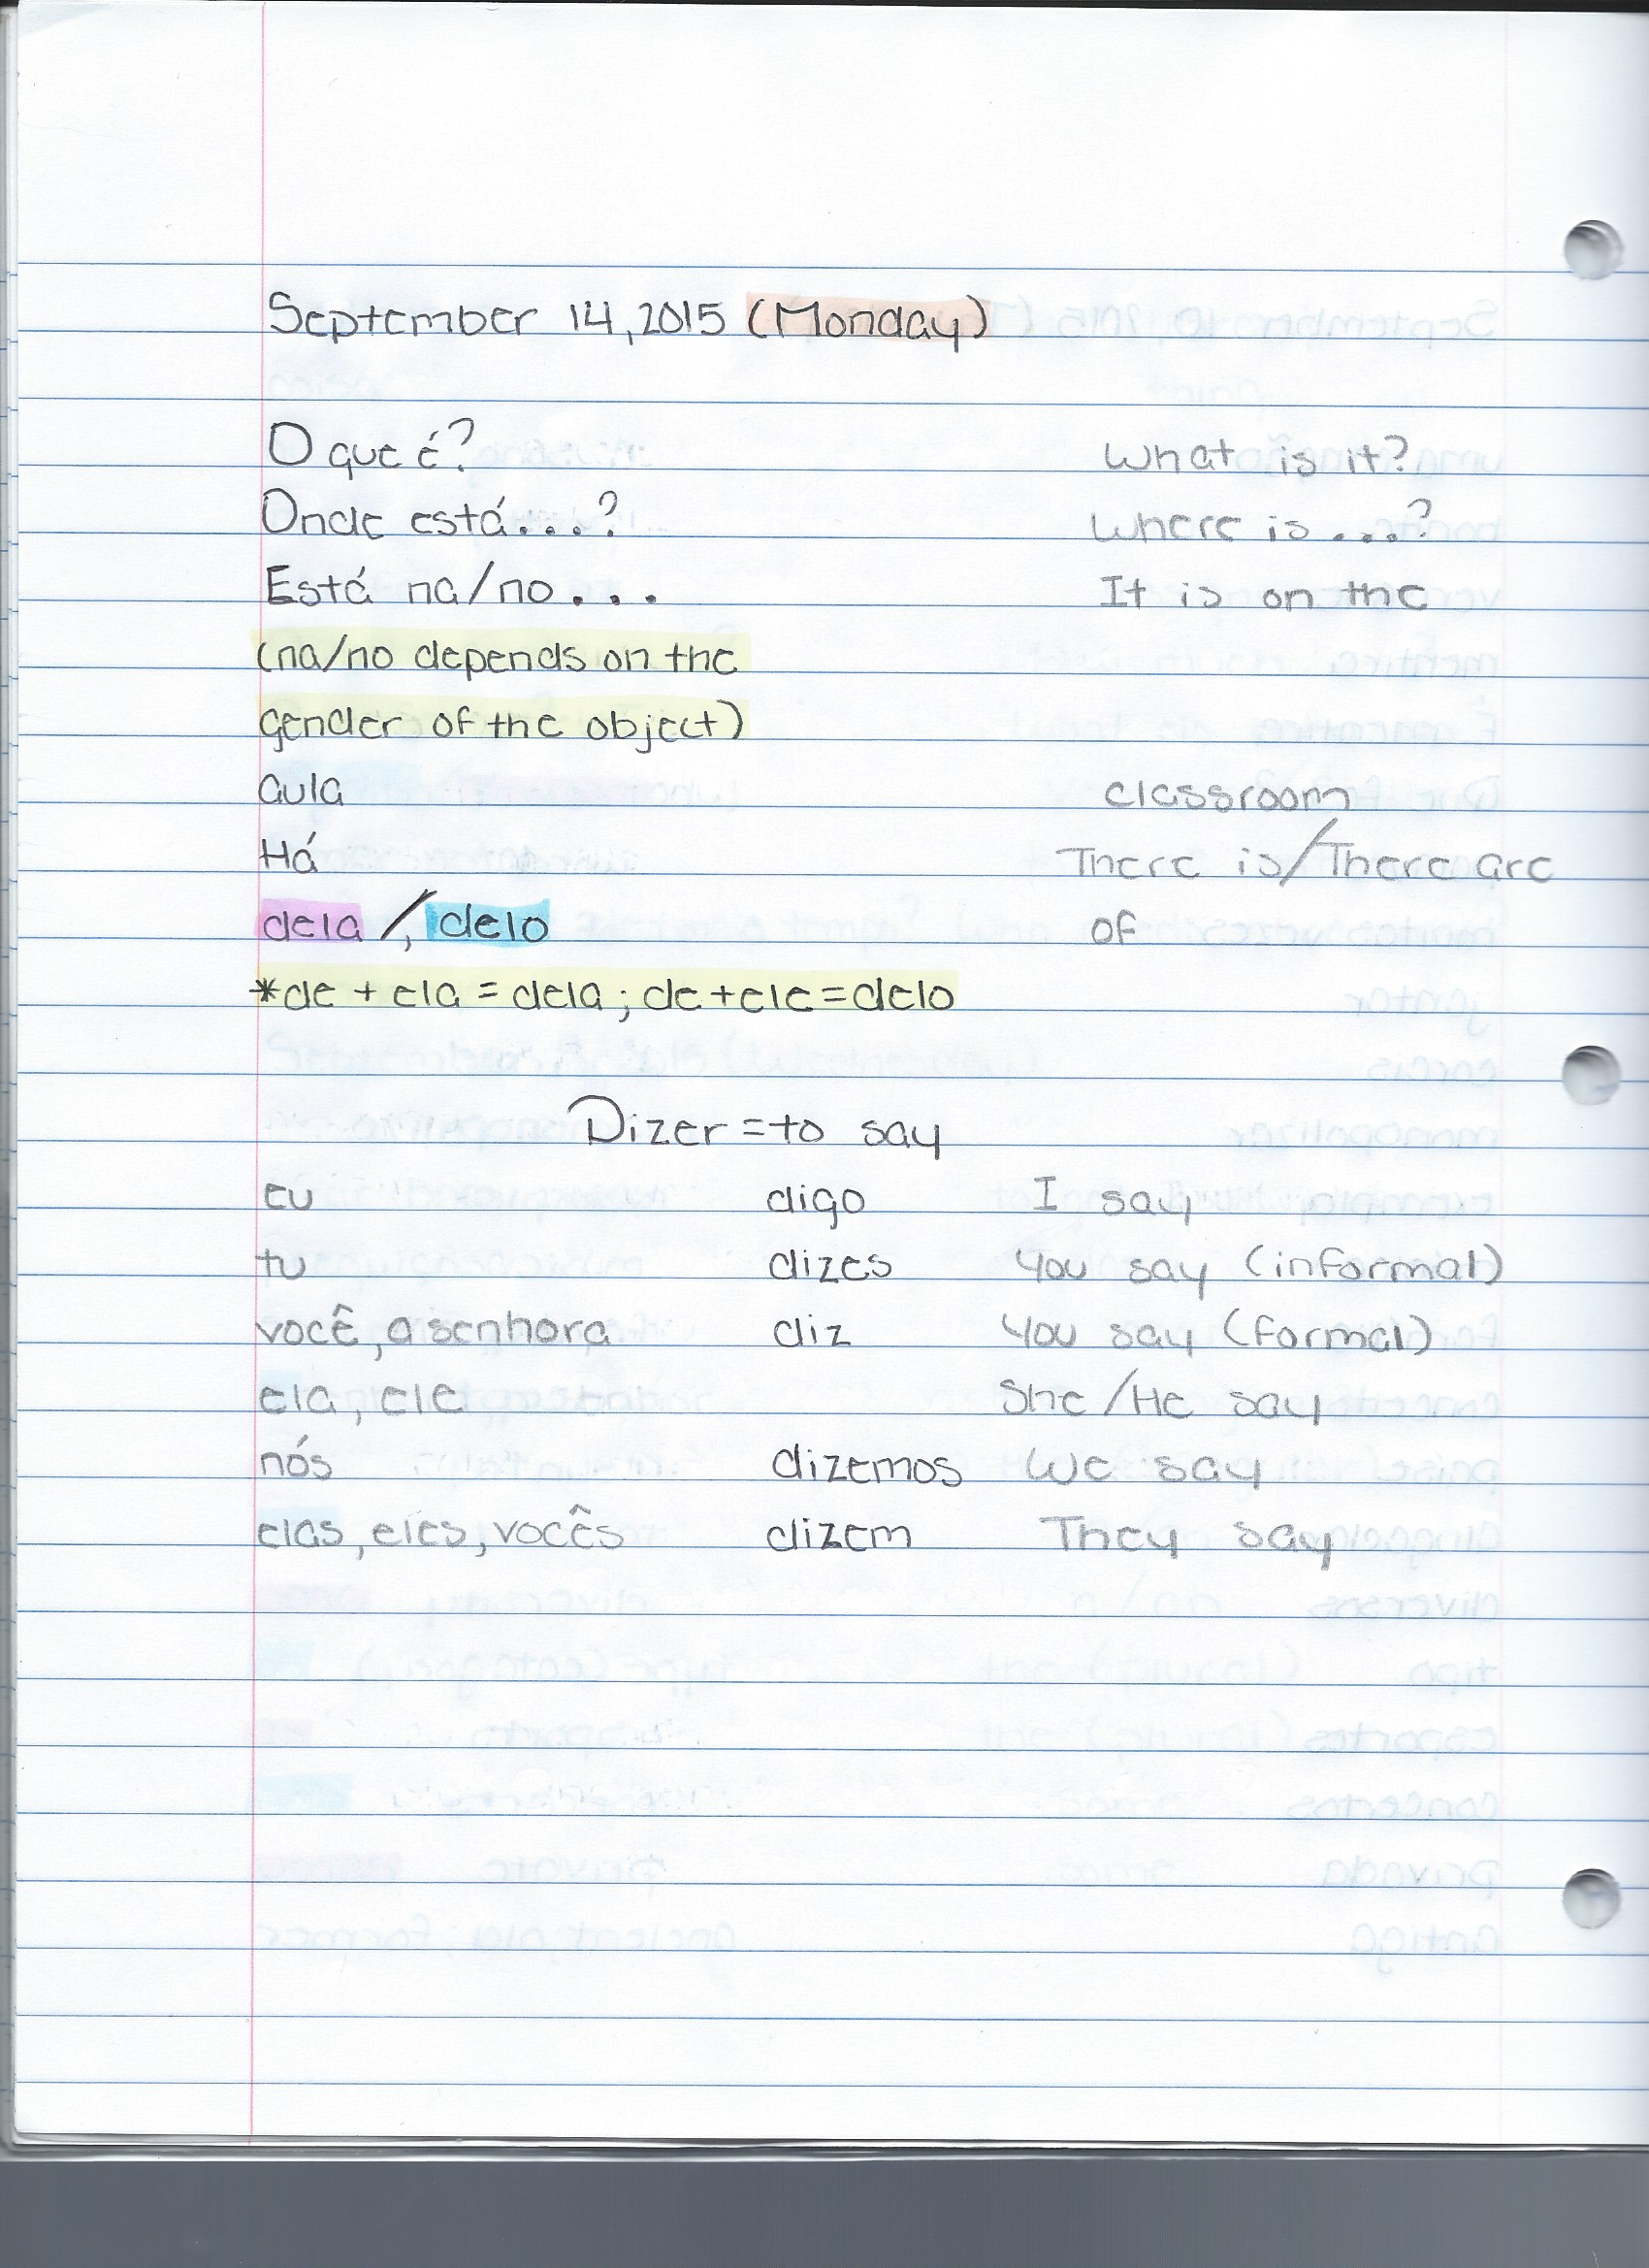 September 14, 2015 (Monday)
O que é? What is it?
Onde está...? Where is ...?
Está na/no... It is on the
(na/no depends on the
gender of the object)
aula classroom
Há There is/There are
dela /, delo of
*de + ela = dela; de + ele = delo
Dizer = to say
eu digo I say
tu dizes You say (informal)
você, a senhora diz You say (formal)
ela, ele She/He say
nós dizemos We say
elas, eles, vocês dizem They say